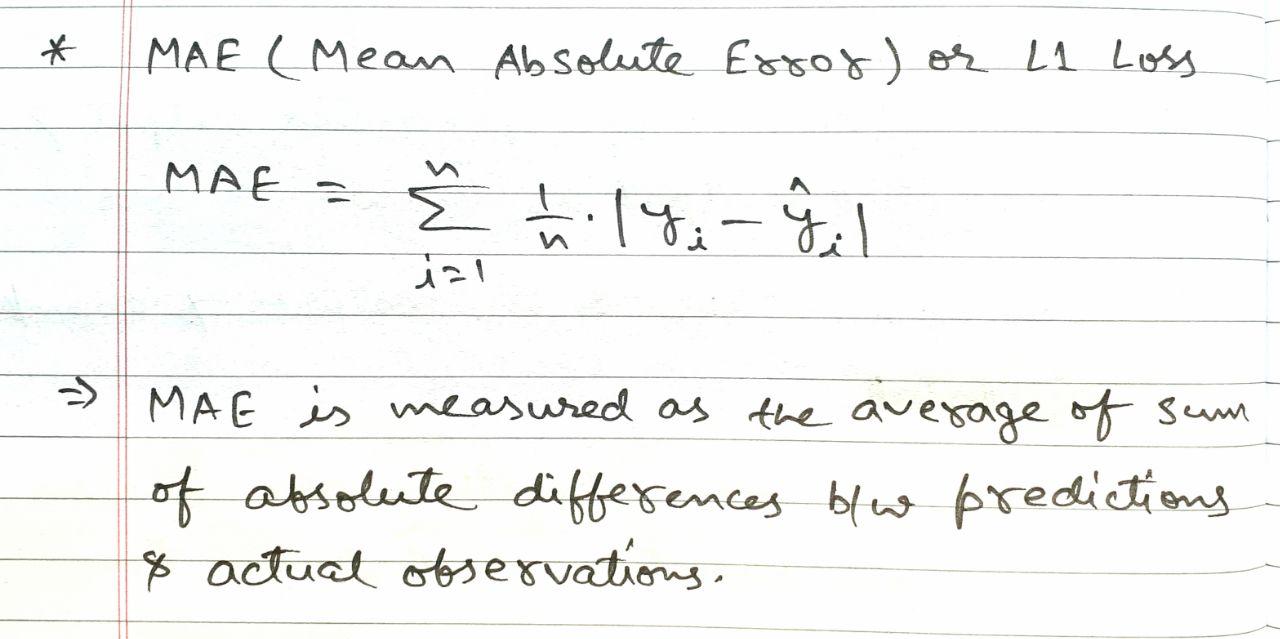 * MAE (Mean Absolute Error) or L1 Loss
MAE = ∑_{i=1}^{n} 1/n · |y_i − ŷ_i|
⇒ MAE is measured as the average of sum
of absolute differences b/w predictions
& actual observations.